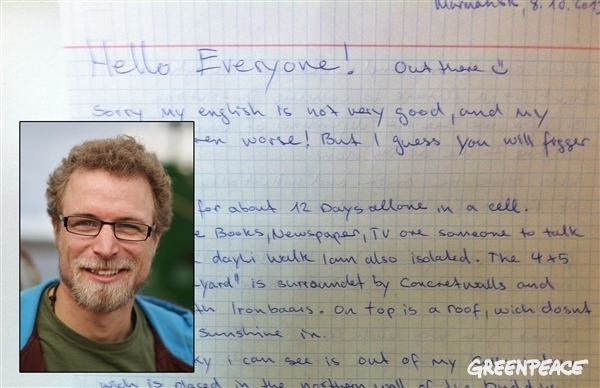 Murmansk, 8.10.2013
Hello Everyone! Out there
Sorry my english is not very good, and my
en worse! But I guess you will figger
for about 12 Days allone in a cell.
e Books, Newspaper, TV ore someone to talk
dayli walk I am also isolated. The 4x5
yard" is surroundet by Concretwalls and
Ironbaars. On top is a roof, wich dosnt
sunshine in.
ky i can see is out of my
wich is placed in the northern wall of the
GREENPEACE